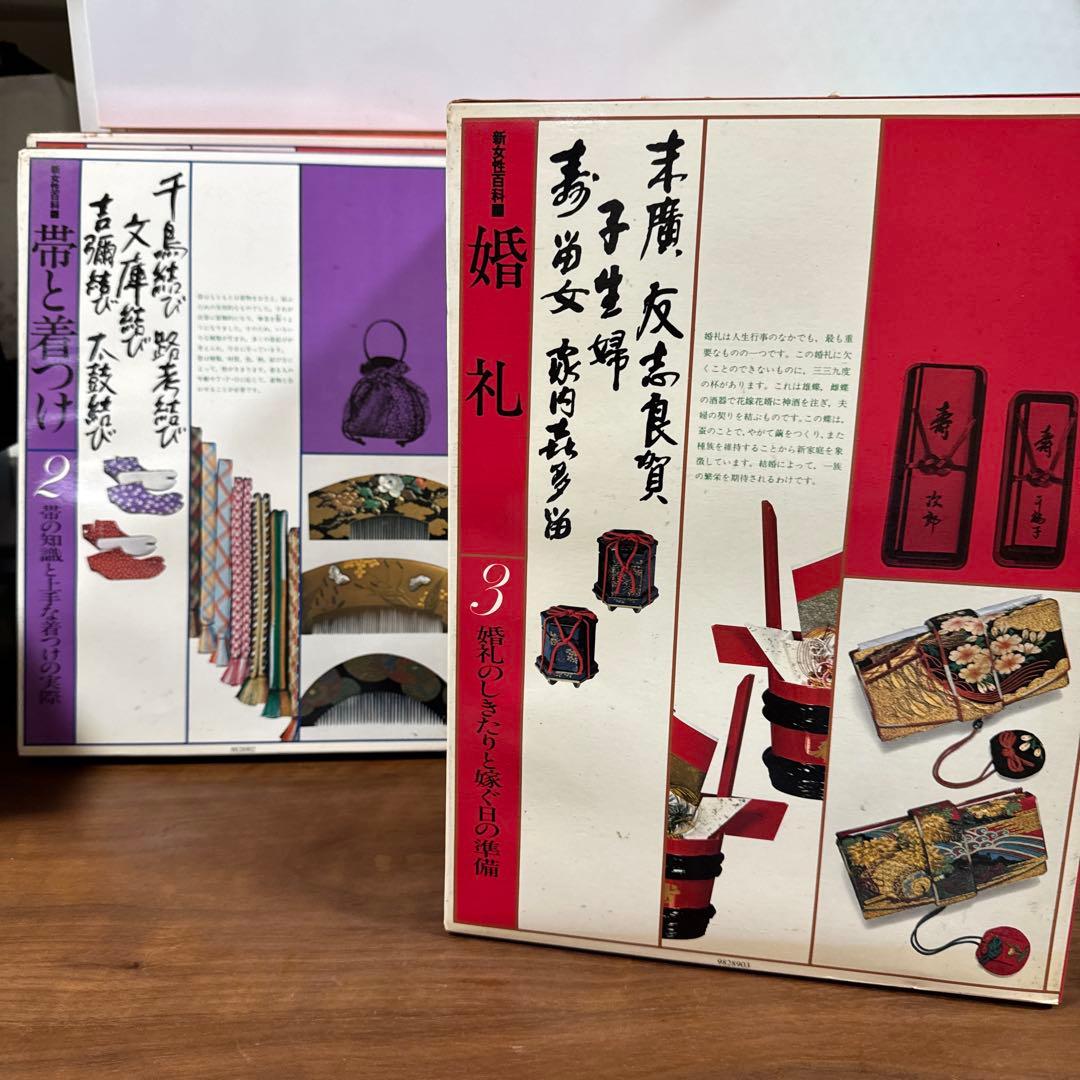 新女性百科
帯と着つけ
2
帯の知識と上手な着つけの実際
千鳥結び 路考結び
文庫結び
吉彌結び 太鼓結び
新女性百科
婚礼
3
婚礼のしきたりと嫁ぐ日の準備
末廣 友志良賀
子生婦
寿留女 家内喜多留
婚礼は人生行事のなかでも、最も重
要なものの一つです。この婚礼に欠
くことのできないものに、三三九度
の杯があります。これは雄蝶、雌蝶
の酒器で花嫁花婿に神酒を注ぎ、夫
婦の契りを結ぶものです。この蝶は、
蚕のことで、やがて繭をつくり、また
種族を維持することから新家庭を象
徴しています。結婚によって、一族
の繁栄を期待されるわけです。
寿
次郎
寿
千鶴子
9828902
9828903